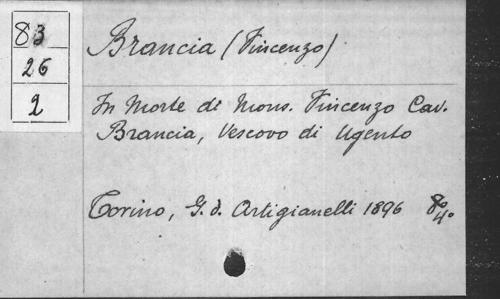 83
26
2
Brancia (Vincenzo)
In Morte di Mons. Vincenzo Cav.
Brancia, Vescovo di Ugento
Torino, G. d. Artigianelli 1896 8º
4º